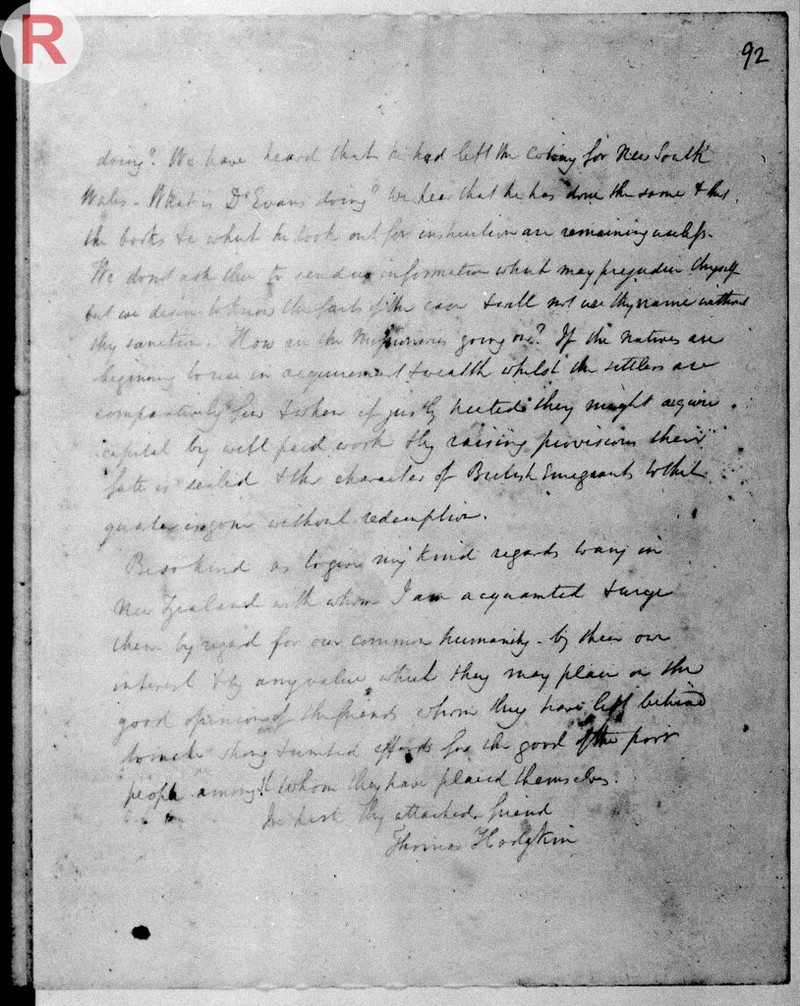 R
92
doing? We have heard that he had left the Colony for New South
Wales - What is Dr Evans doing? We hear that he has done the same & that
the books &c which he took out for instruction are remaining useless.
We don't ask thee to send us information which may prejudice thyself
but we desire to know the facts of the case & will not use thy name without
thy sanction. How are the Missionaries going on? If the natives are
beginning to rise in acquirement & wealth whilst the settlers are
comparatively few & when if justly treated they might acquire
capital by well paid work & by raising provisions their
fate is sealed & the character of British Emigrants to that
quarter is gone without redemption.
Be so kind as to give my kind regards to any in
New Zealand with whom I am acquainted & urge
them by regard for our common humanity - by their own
interest & by any value which they may place on the
good opinion of the friends whom they have left behind
to make strong & united efforts for the good of the poor
people amongst whom they have placed themselves.
In haste thy attached friend
Thomas Hodgkin